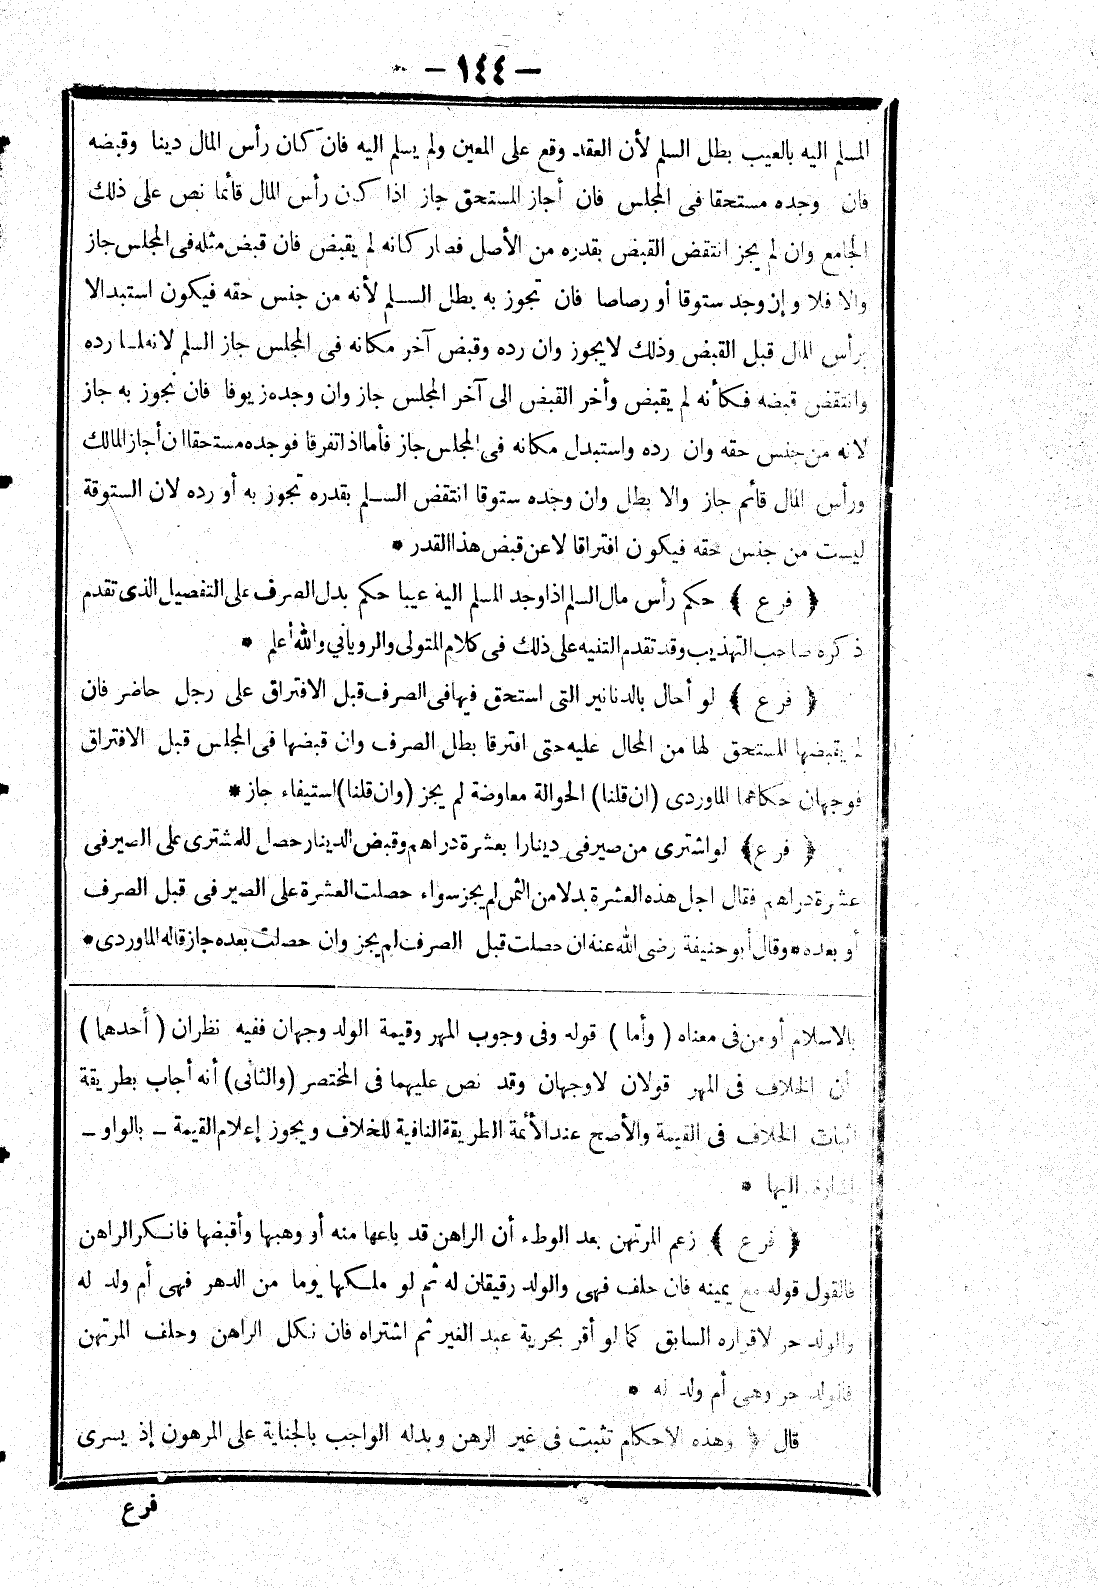 — ١٤٤ —
المسلم اليه بالعيب بطل السلم لأن العقد وقع على المعين ولم يسلم اليه فان كان رأس المال دينا وقبضه
فان وجده مستحقا فى المجلس فان أجاز المستحق جاز اذا كان رأس المال قائما نص على ذلك
الجامع وان لم يجز انتقض القبض بقدره من الأصل فصار كانه لم يقبض فان قبض مثله فى المجلس جاز
والا فلا وإن وجد ستوقا أو رصاصا فان تجوز به بطل السلم لأنه من جنس حقه فيكون استبدالا
برأس المال قبل القبض وذلك لا يجوز وان رده وقبض آخر مكانه فى المجلس جاز السلم لانه لما رده
وانتقض قبضه فكأنه لم يقبض وأخر القبض الى آخر المجلس جاز وان وجده زيوفا فان تجوز به جاز
لانه من جنس حقه وان رده واستبدل مكانه فى المجلس جاز فأما اذا تفرقا فوجده مستحقا ان أجاز المالك
ورأس المال قائم جاز والا بطل وان وجده ستوقا انتقض السلم بقدره تجوز به أو رده لان الستوقة
ليست من جنس حقه فيكون افتراقا لا عن قبض هذا القدر *
﴿ فرع ﴾ حكم رأس مال السلم اذا وجد المسلم اليه عيبا حكم بدل الصرف على التفصيل الذى تقدم
ذكره صاحب التهذيب وقد تقدم التنبيه على ذلك فى كلام المتولى والرويانى والله أعلم *
﴿ فرع ﴾ لو أحال بالدنانير التى استحق فيها فى الصرف قبل الافتراق على رجل حاضر فان
لم يقبضها المستحق لها من المحال عليه حتى افترقا بطل الصرف وان قبضها فى المجلس قبل الافتراق
فوجهان حكاهما الماوردى (ان قلنا) الحوالة معاوضة لم يجز (وان قلنا) استيفاء جاز *
﴿ فرع ﴾ لو اشترى من صيرفى دينارا بعشرة دراهم وقبض الدينار حصل للمشترى على الصيرفى
عشرة دراهم فقال اجل هذه العشرة بدلا من الثمن لم يجز سواء حصلت العشرة على الصيرفى قبل الصرف
أو بعده * وقال أبو حنيفة رضى الله عنه ان حصلت قبل الصرف لم يجز وان حصلت بعده جاز قاله الماوردى *
بالاسلام أو من فى معناه ( وأما ) قوله وفى وجوب المهر وقيمة الولد وجهان ففيه نظران ( أحدهما )
أن الخلاف فى المهر قولان لا وجهان وقد نص عليهما فى المختصر (والثانى) أنه أجاب بطريقة
اثبات الخلاف فى القيمة والأصح عند الأئمة الطريقة النافية للخلاف ويجوز إعلام القيمة ــ بالواو ــ
اشارة اليها *
﴿ فرع ﴾ زعم المرتهن بعد الوطء أن الراهن قد باعها منه أو وهبها وأقبضها فانكر الراهن
فالقول قوله مع يمينه فان حلف فهى والولد رقيقان له ثم لو ملكها يوما من الدهر فهى أم ولد له
والولد حر لاقراره السابق كما لو أقر بحرية عبد الغير ثم اشتراه فان نكل الراهن وحلف المرتهن
فالولد حر وهى أم ولد له *
قال ﴿ وهذه الاحكام تثبت فى غير الرهن وبدله الواجب بالجناية على المرهون إذ يسرى
فرع